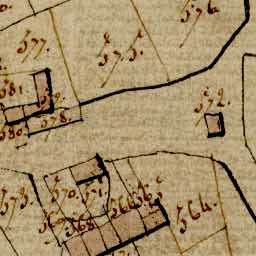 576.
577.
575.
581.
579.
572.
580.
578.
573.
570.
571.
566
565
564.
568